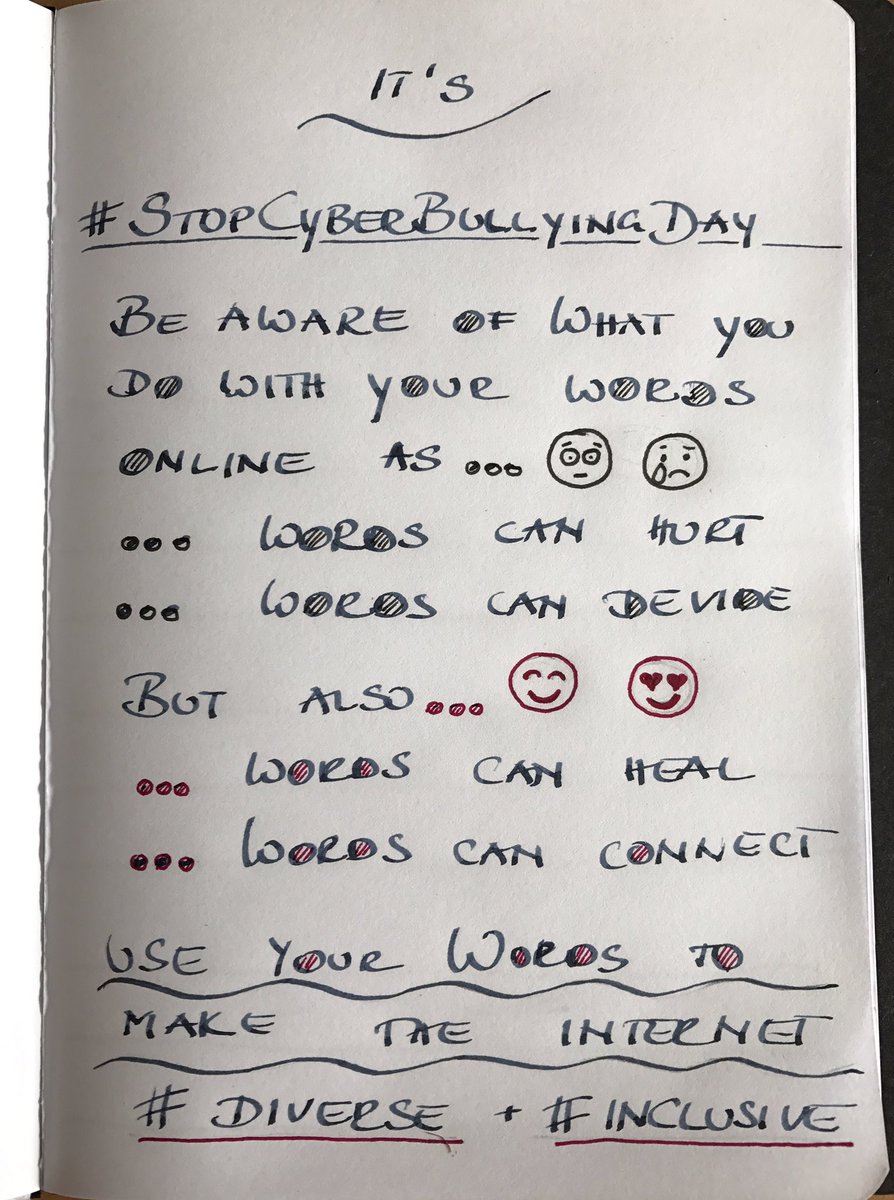 IT'S
#STOPCYBERBULLYINGDAY
BE AWARE OF WHAT YOU
DO WITH YOUR WORDS
ONLINE AS ...
... WORDS CAN HURT
... WORDS CAN DEVIDE
BUT ALSO ...
... WORDS CAN HEAL
... WORDS CAN CONNECT
USE YOUR WORDS TO
MAKE THE INTERNET
#DIVERSE + #INCLUSIVE